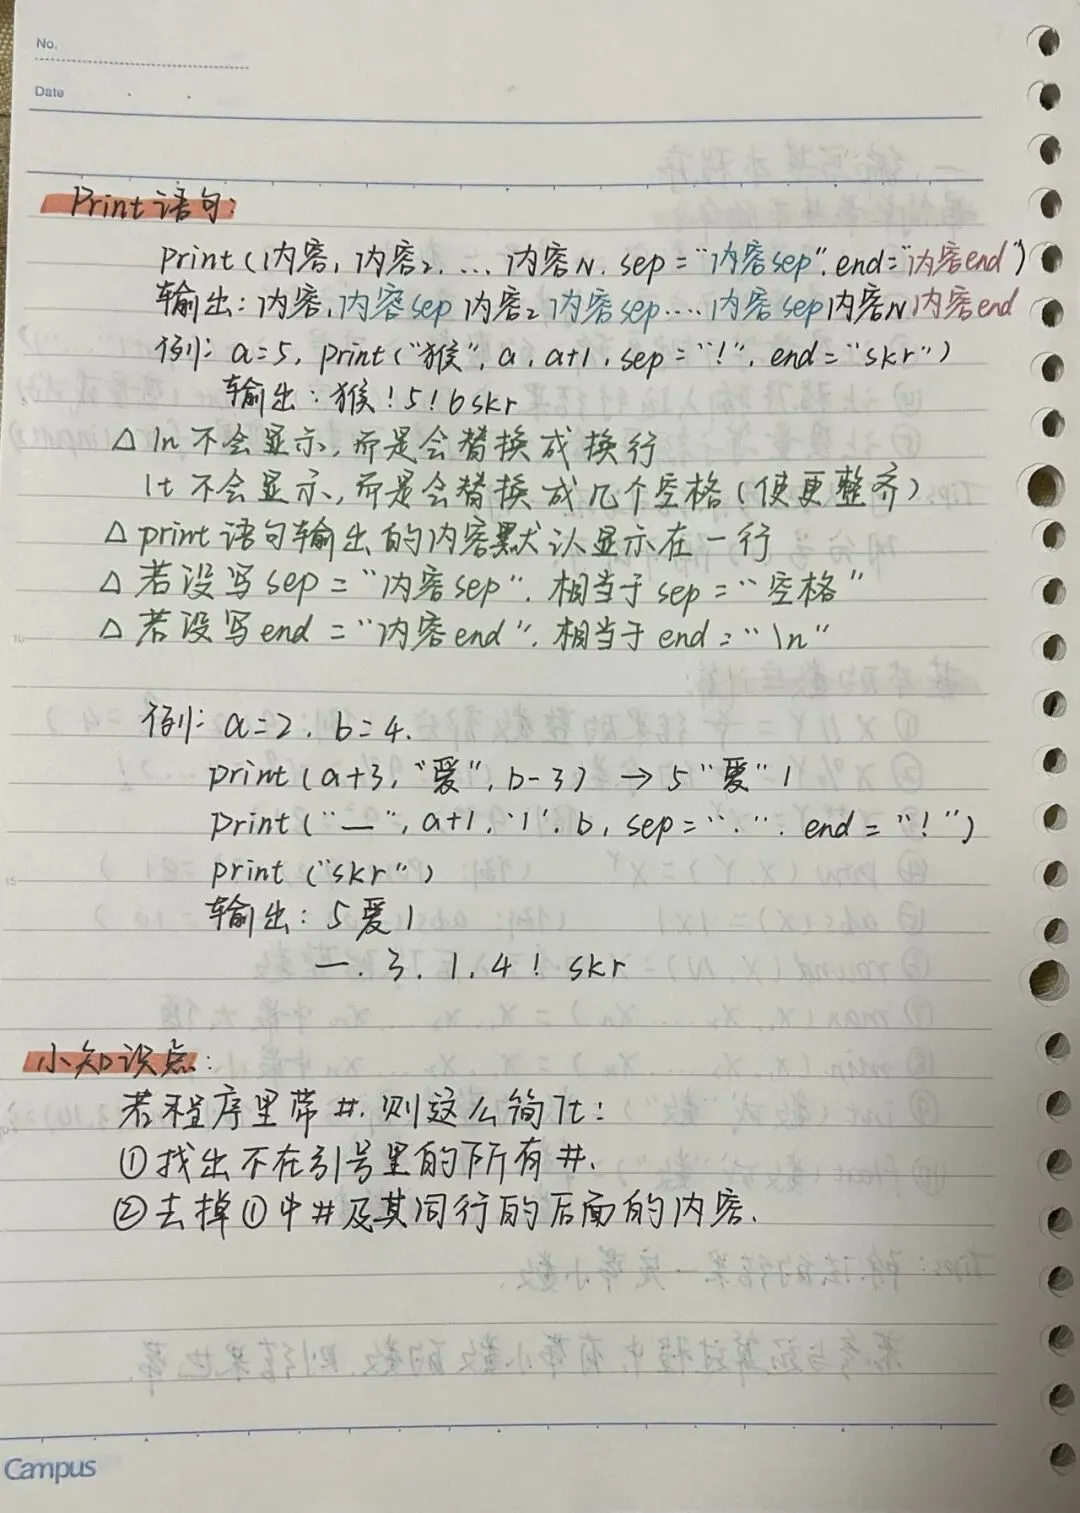 No.
Date
Print语句:
print(内容1, 内容2, ... 内容N, sep="内容sep", end="内容end")
输出: 内容1内容sep内容2内容sep....内容sep内容N内容end
例: a=5, print("猴", a, a+1, sep="!", end="skr")
输出: 猴!5!6skr
△ \n 不会显示, 而是会替换成换行
\t 不会显示, 而是会替换成几个空格(使更整齐)
△ print语句输出的内容默认显示在一行
△ 若没写sep="内容sep", 相当于sep="空格"
△ 若没写end="内容end", 相当于end="\n"
例: a=2, b=4.
print(a+3, "爱", b-3) → 5"爱"1
print("一", a+1, '1', b, sep=".", end="!")
print("skr")
输出: 5爱1
一.3.1.4! skr
小知识点:
若程序里带#, 则这么简化:
①找出不在引号里的所有#.
②去掉①中#及其同行的后面的内容.
Campus